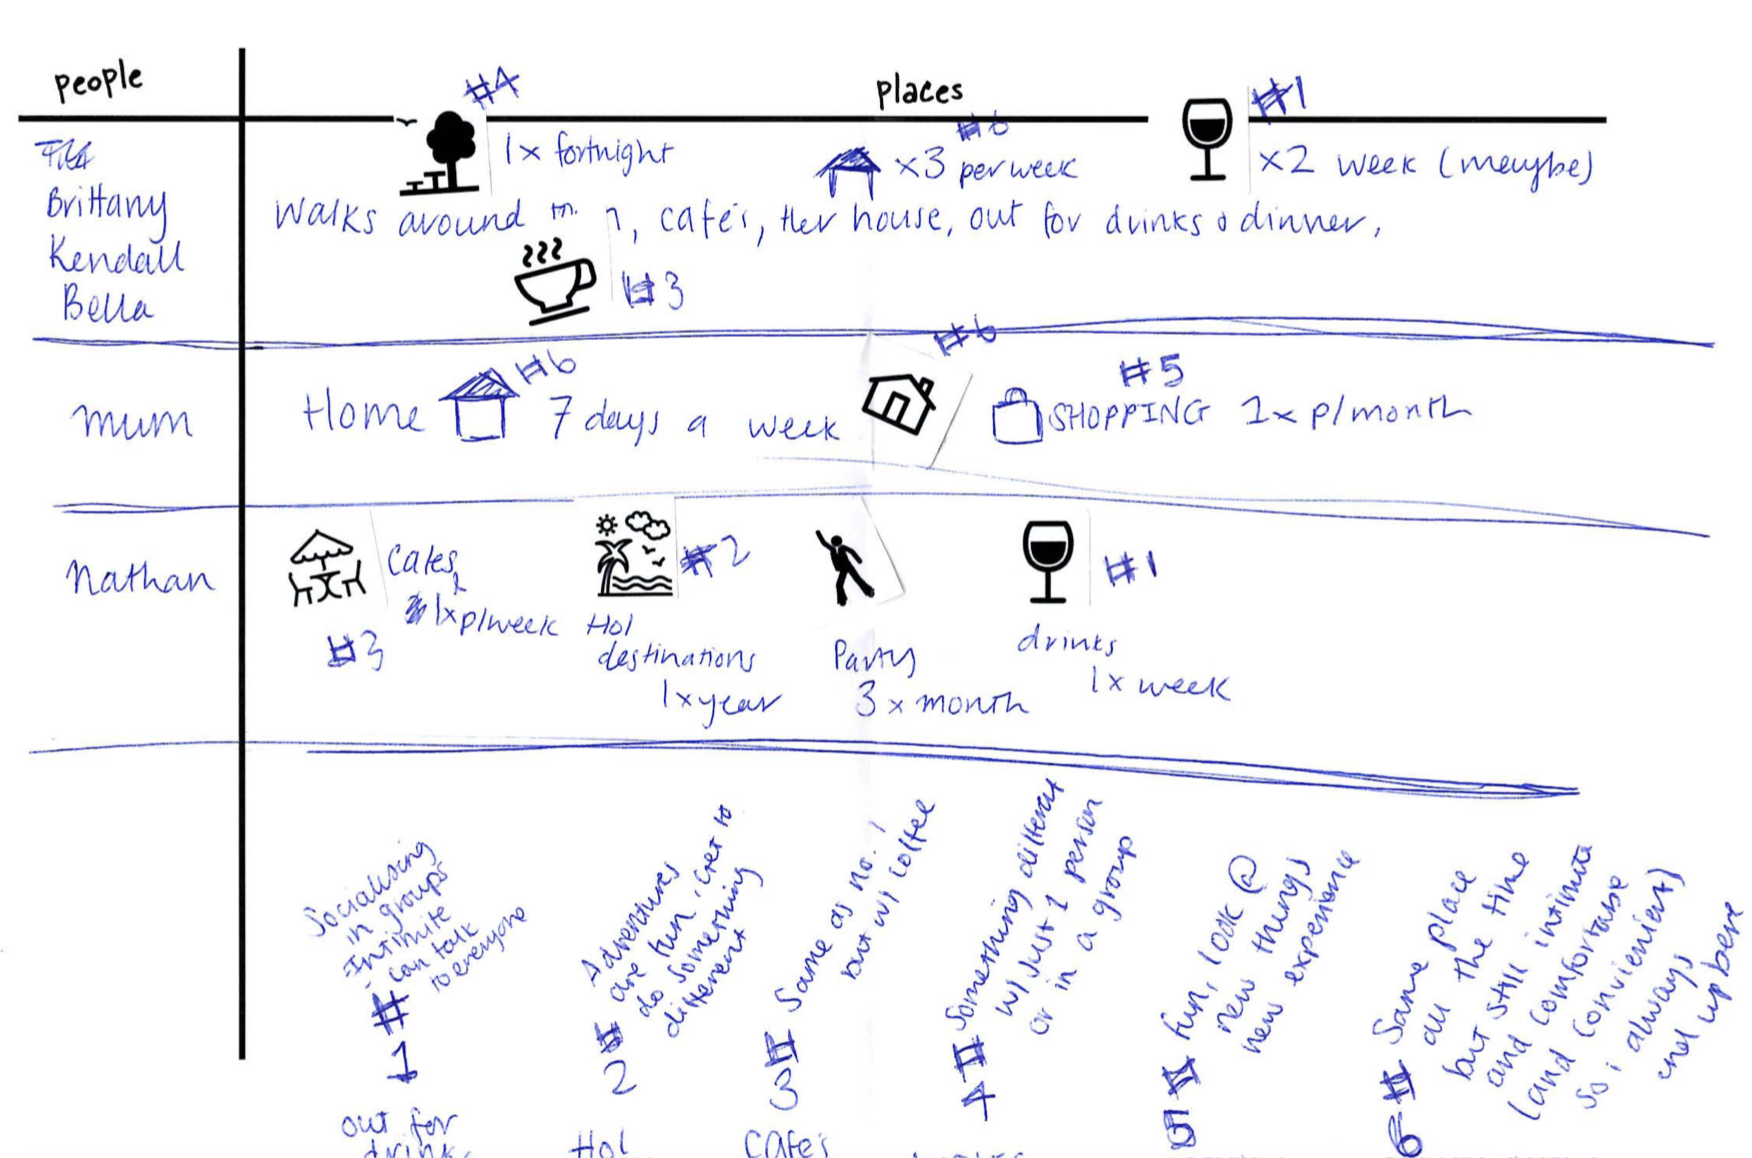 people
places
#4
#6
#1
1x fortnight
x3 per week
x2 week (maybe)
Brittany
Kendall
Bella
Walks around
, cafe's, Her house, out for drinks & dinner,
#3
mum
Home
#6
7 days a week
#6
#5
SHOPPING 1x p/month
Nathan
Cafes
1x p/week
#3
#2
Hol
destinations
1x year
Party
3 x month
#1
drinks
1x week
Socialising
in groups
Intimite
can talk
to everyone
#
1
out for
drink
Adventures
are fun, Get to
do something
different
#
2
Hol
Same as no. 1
but w/ coffee
#
3
Cafe's
Something different
w/ just 1 person
or in a group
#
4
fun, look @
new things
new experience
#
5
Same place
all the time
but still intimate
and comfortable
(and convienient)
so i always
end up here
#
6